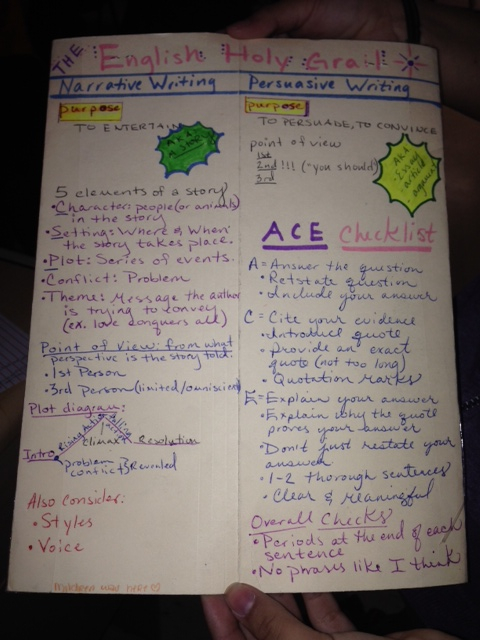 THE English Holy Grail
Narrative Writing
purpose
TO ENTERTAIN
AKA
5 elements of a story
• Character: people (or animals)
in the story
• Setting: Where & When
the story takes place.
• Plot: Series of events.
• Conflict: Problem
• Theme: Message the author
is trying to convey
(ex. love conquers all)
Point of View: from what
perspective is the story told.
• 1st Person
• 3rd Person (limited/omniscient)
Plot diagram:
Rising Action
Falling Action
Climax
Resolution
Intro
Problem
conflict Revealed
Also Consider:
• Styles
• Voice
was here
Persuasive Writing
purpose
TO PERSUADE, TO CONVINCE
point of view
1st
2nd !!! ("you should")
3rd
AKA
Essay
article
ACE Checklist
A = Answer the question
• Restate question
• Include your answer
C = Cite your evidence
• Introduce quote
• Provide an exact
quote (not too long)
• Quotation Marks
E = Explain your answer
• Explain why the quote
proves your answer
• Don't just restate your
answer
• 1-2 thorough sentences
• Clear & Meaningful
Overall Checks
• Periods at the end of each
sentence
• No phrases like I think